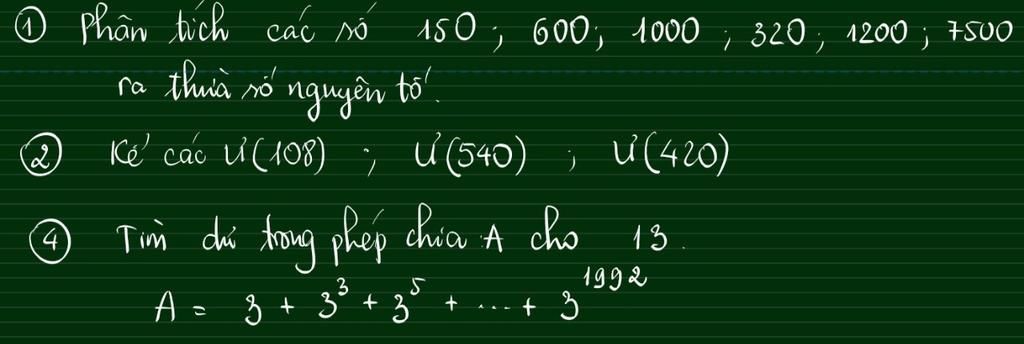 ① Phân tích các số 150; 600; 1000; 320; 1200; 7500
ra thừa số nguyên tố.
② Kể các Ư(108); Ư(540); Ư(420)
④ Tìm dư trong phép chia A cho 13.
A = 3 + 3³ + 3⁵ + ... + 3¹⁹⁹²